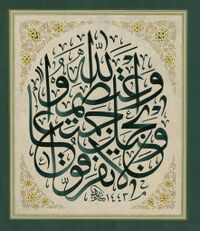 واعتصموا بحبل الله جميعا ولا تفرقوا
١٤٤٣